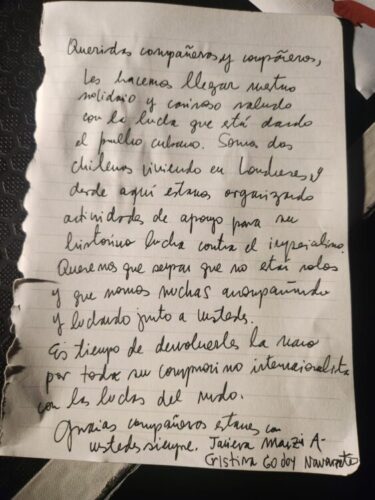 Queridas compañeras y compañeros,
Les hacemos llegar nuestro
solidario y cariñoso saludo
con la lucha que está dando
el pueblo cubano. Somos dos
chilenas viviendo en Londres, y
desde aquí estamos organizando
actividades de apoyo para su
histórica lucha contra el imperialismo.
Queremos que sepan que no están solos
y que somos muchas acompañando
y luchando junto a ustedes.
Es tiempo de devolverles la mano
por todo su compromiso internacionalista
con las luchas del mundo.
Gracias compañeros estamos con
ustedes siempre. Javiera Manzi A-
Cristina Godoy Navarrete